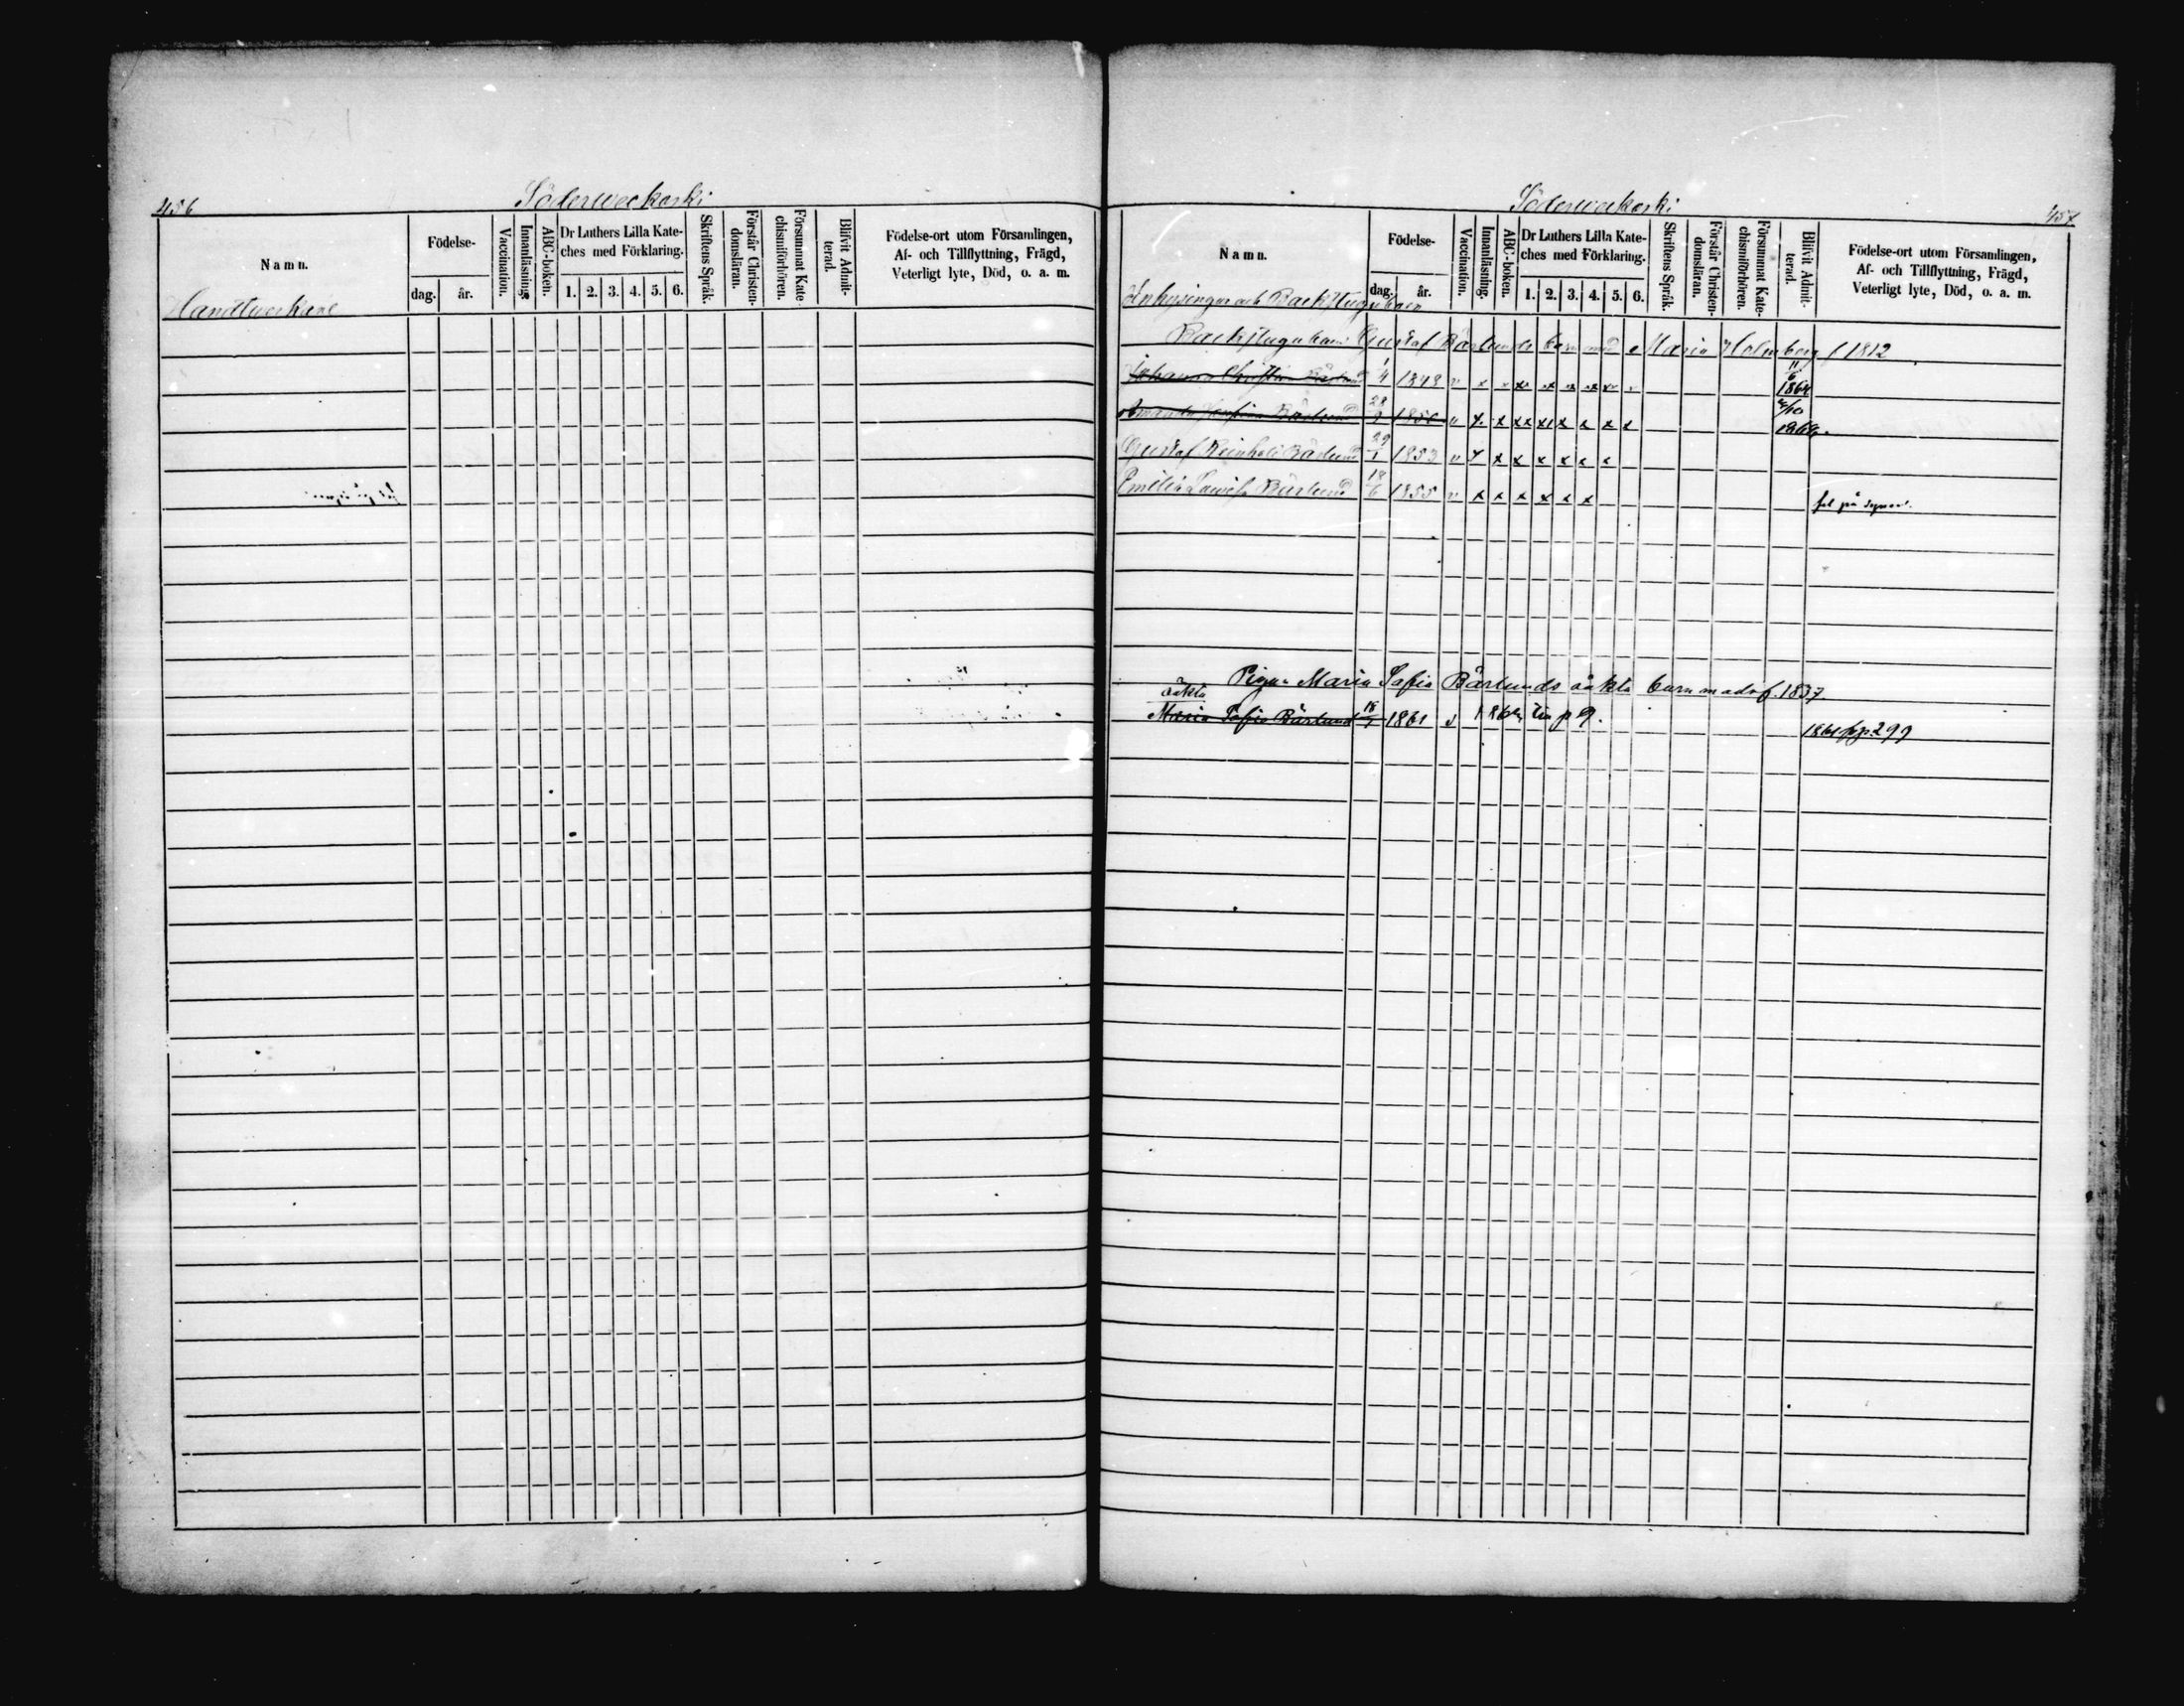 456
Söderweckoski
Namn.
Födelse-
dag.
år.
Vaccination.
Innanläsning.
ABC-boken.
Dr Luthers Lilla Kate-
ches med Förklaring.
1. 2. 3. 4. 5. 6.
Skriftens Språk.
Förstår Christen-
domsläran.
Försummat Kate-
chismiförhören.
Blifvit Admit-
terad.
Födelse-ort utom Församlingen,
Af- och Tillflyttning, Frägd,
Veterligt lyte, Död, o. a. m.
Handtverkare
Söderweckoski
457
Namn.
Födelse-
dag.
år.
Vaccination.
Innanläsning.
ABC-boken.
Dr Luthers Lilla Kate-
ches med Förklaring.
1. 2. 3. 4. 5. 6.
Skriftens Språk.
Förstår Christen-
domsläran.
Försummat Kate-
chismiförhören.
Blifvit Admit-
terad.
Födelse-ort utom Församlingen,
Af- och Tillflyttning, Frägd,
Veterligt lyte, Död, o. a. m.
Inhysingar och Backstuguboer
Backstugukarl Gustaf Bärlunds barn med Maria Holmberg f 1812
Johanna Christina Bärlund 1/4 1848 v x x x x x x x 11/6 1864
Amanda Josefina Bärlund 28 1850 v x x xx xx x x x x 10 1866.
Gustaf Reinhold Bärlund 29/1 1853 v x x x x x x x
Emilia Lovisa Bärlund 18/6 1855 v x x x x x x fel på synen.
Pigan Maria Sofia Bärlunds oäkta barn modr f. 1837
oäkta
Maria Sofia Bärlund 18 1861 v 1864 till p 9. 1861 fr p. 299